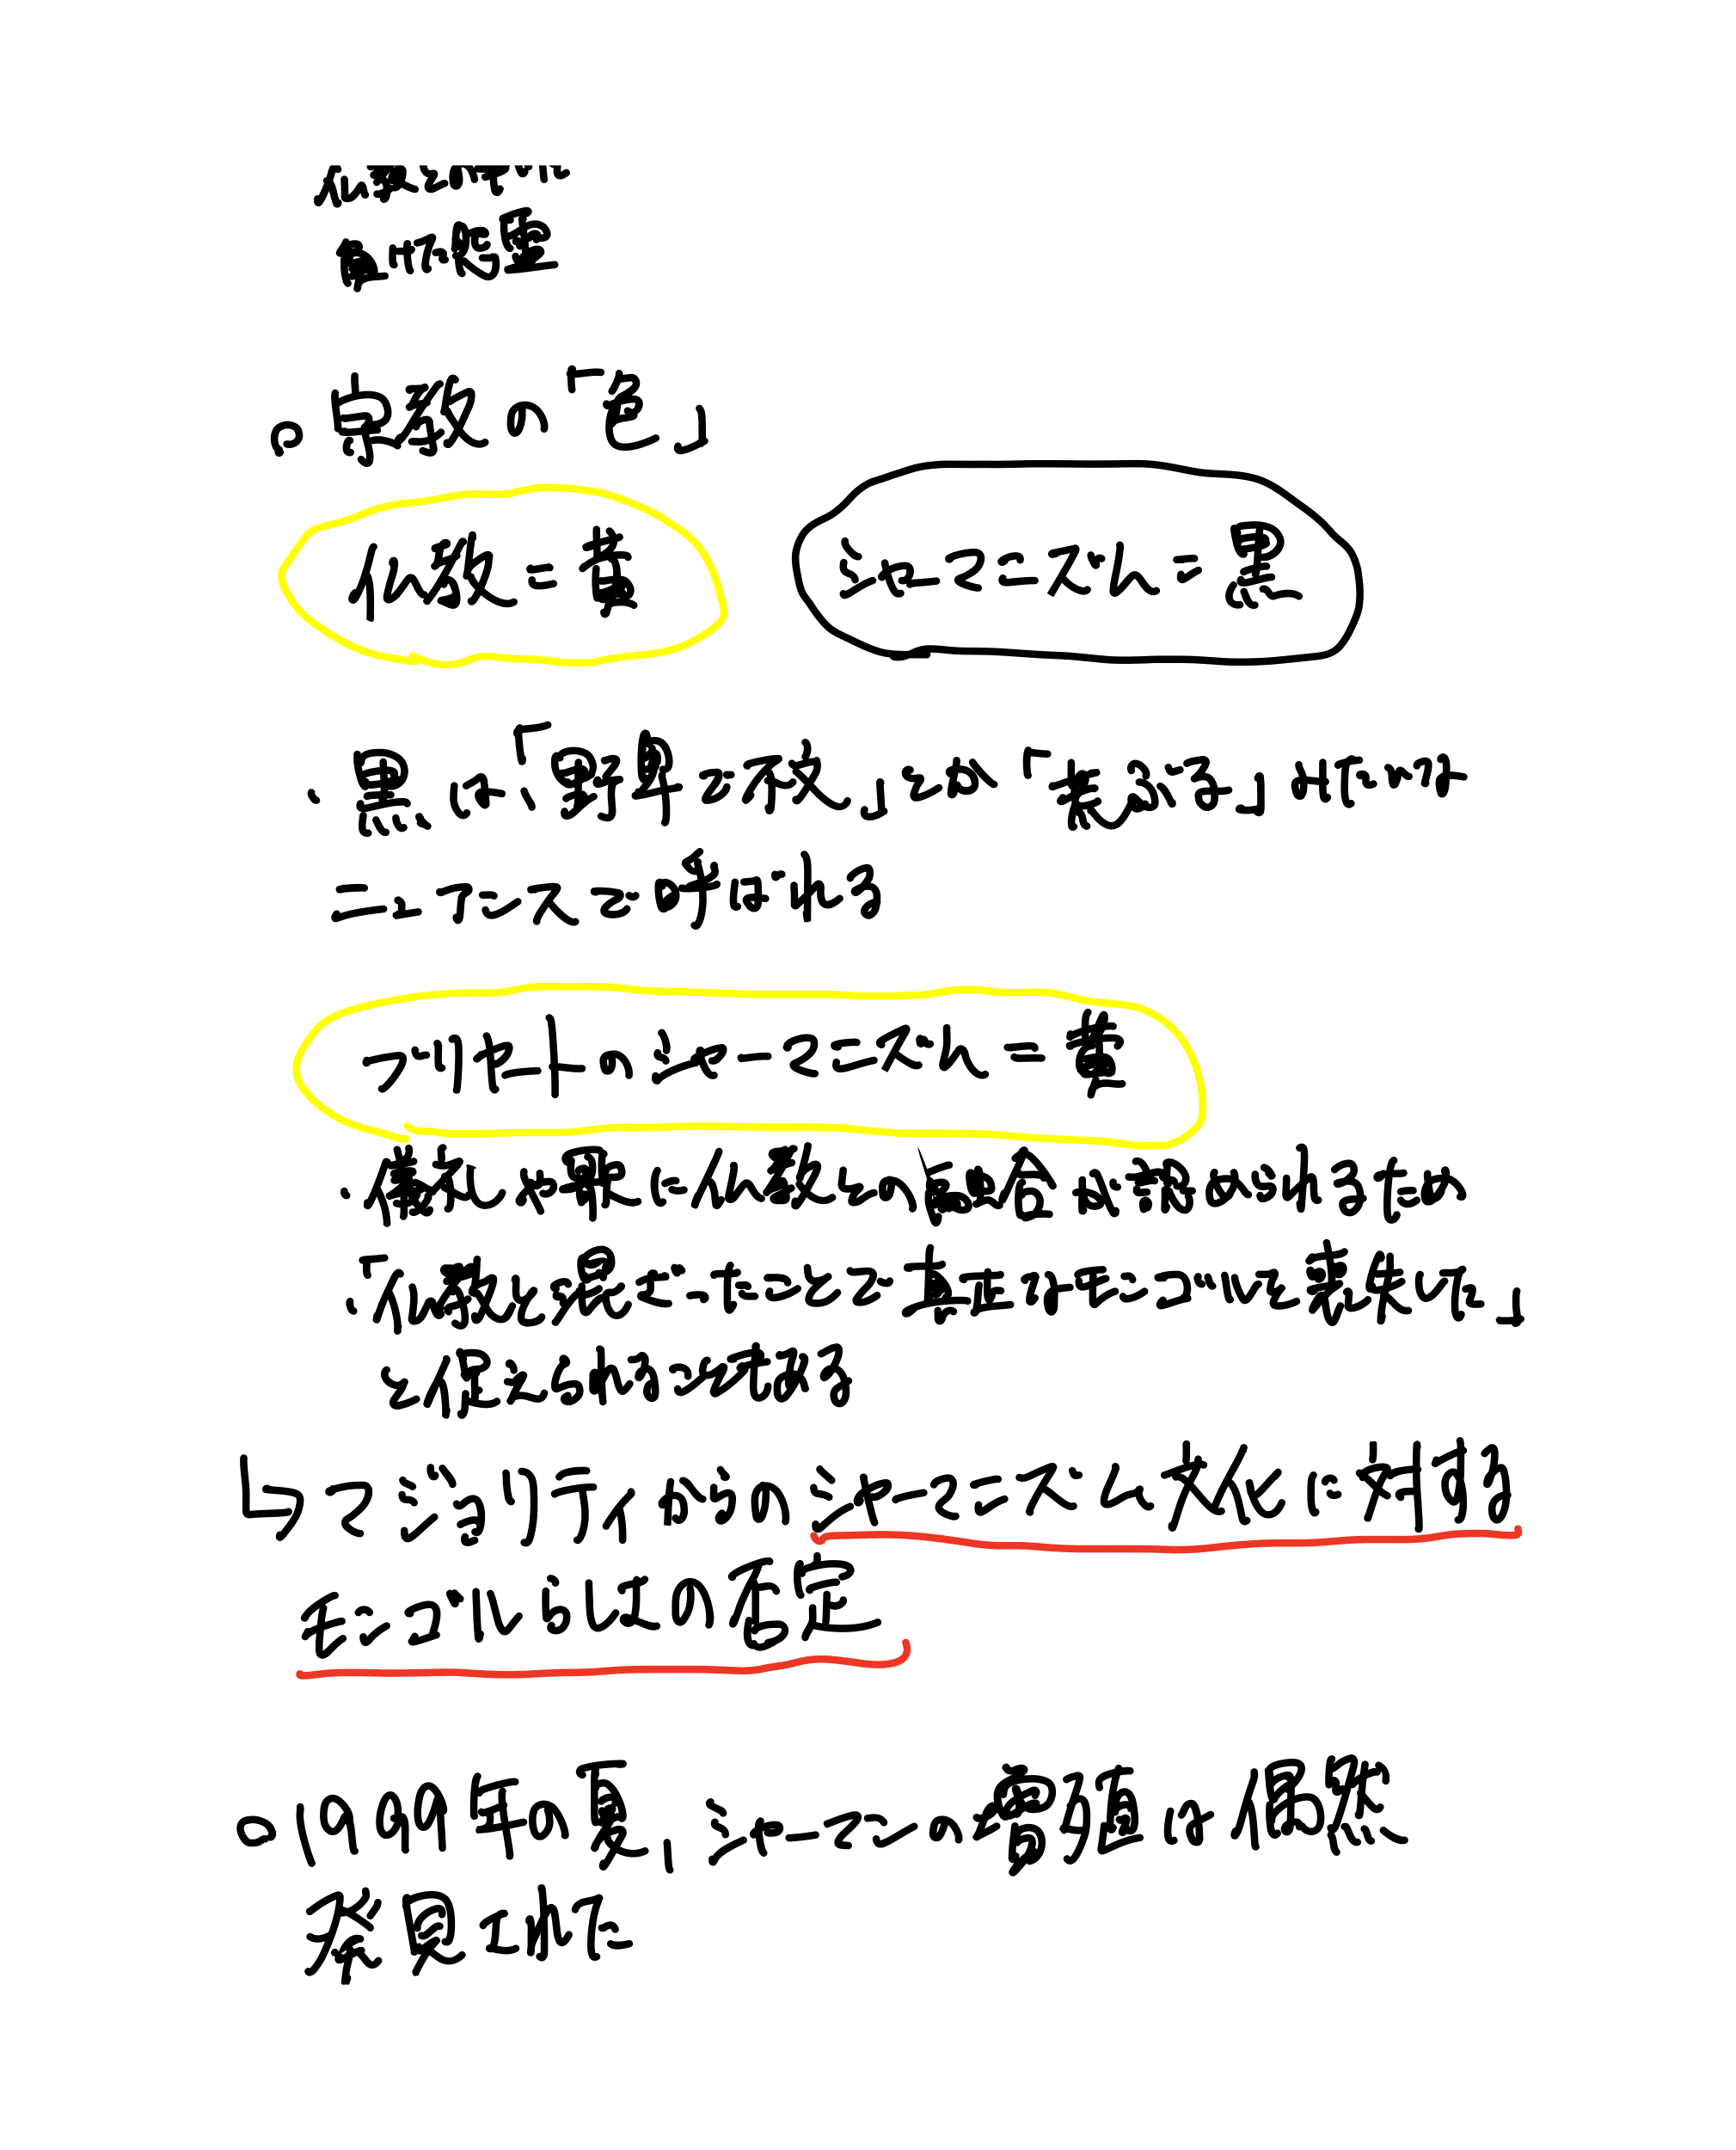 。宗教の「色」
仏教=黄
シャーマニズム=黒
・黒は「野卑で不浄」とか「恵みの母」みたいな
ニュアンスで呼ばれる
ブリヤートのシャーマニズム=黄
・儀礼や暦に仏教との融合が認められるため
・「仏教と混ざったことで真正なモンゴルを喪失した」
と捉えられがちである
↳マジョリティが的のシャーマニズム文化に対する
モンゴルらしさの否定
。1999年の夏、シャーマンの霊殖は偶然
発見された